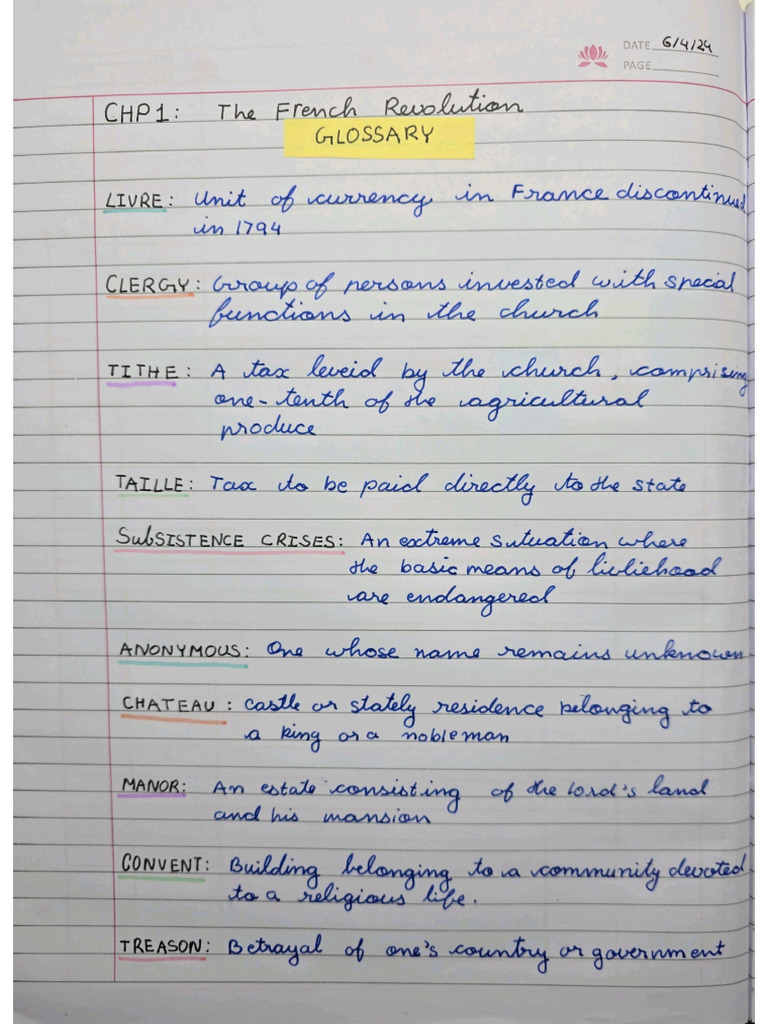 DATE 6/4/24
PAGE
CHP1: The French Revolution
GLOSSARY
LIVRE: Unit of currency in France discontinued
in 1794
CLERGY: Group of persons invested with special
functions in the church
TITHE: A tax leveid by the church, comprising
one-tenth of the agricultural
produce
TAILLE: Tax to be paid directly to the state
SubSISTENCE CRISES: An extreme sutuation where
the basic means of livliehood
are endangered
ANONYMOUS: One whose name remains unknown
CHATEAU: castle or stately residence belonging to
a king or a nobleman
MANOR: An estate consisting of the lord's land
and his mansion
CONVENT: Building belonging to a community devoted
to a religious life.
TREASON: Betrayal of one's country or government